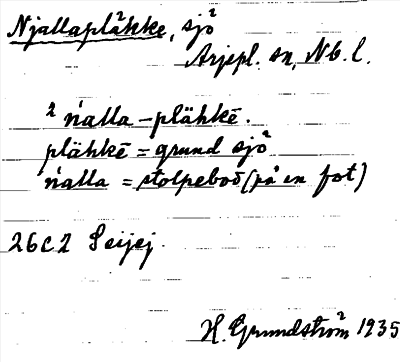 Njallaplähke, sjö
Arjepl. sn, Nb. l.
2 ńalla-plähkē.
plähkē = grund sjö
ńalla = stolpebod (på en fot)
26C2 Seijej.
H. Grundström 1935